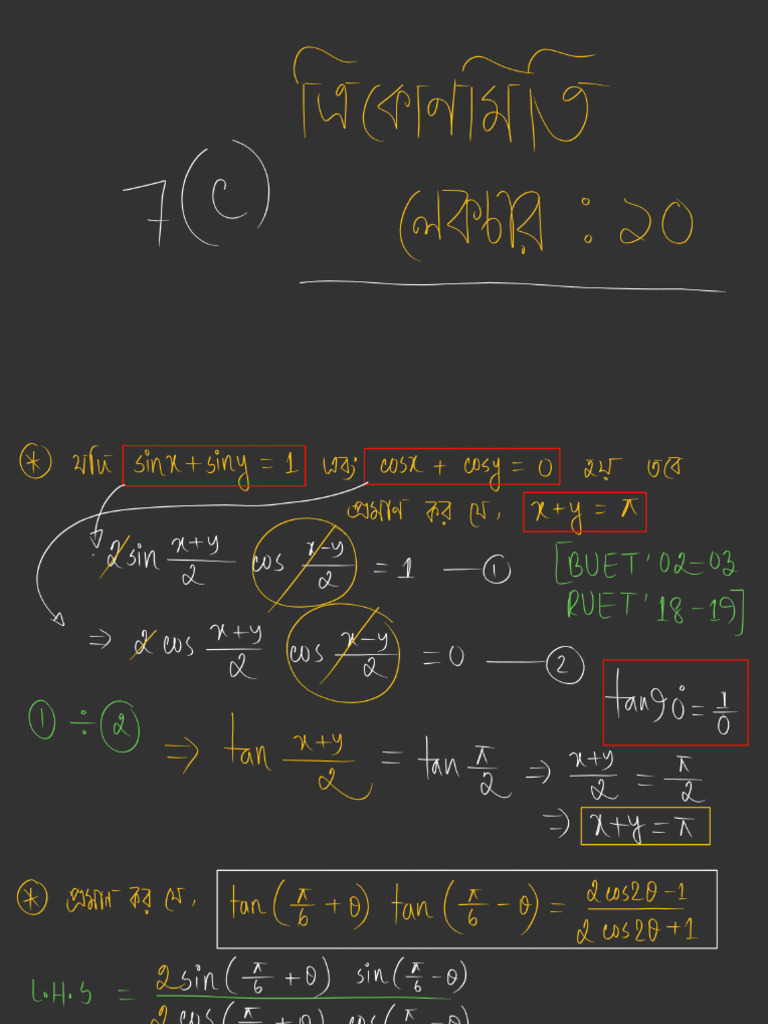 ত্রিকোনমিতি
7(c)
লেকচার : ১০
* যদি sinx + siny = 1 এবং cosx + cosy = 0 হয় তবে
প্রমাণ কর যে, x+y = π
∴ 2 sin (x+y)/2 cos (x-y)/2 = 1 — ①
[BUET '02-03
RUET '18-19]
⇒ 2 cos (x+y)/2 cos (x-y)/2 = 0 — ②
tan90° = 1/0
① ÷ ② ⇒ tan (x+y)/2 = tan π/2 ⇒ (x+y)/2 = π/2
⇒ x+y = π
* প্রমাণ কর যে, tan(π/6 + θ) tan(π/6 - θ) = (2cos2θ-1)/(2cos2θ+1)
L.H.S = 2sin(π/6 + θ) sin(π/6 - θ)
2cos(π/6 + θ) cos(π/6 - θ)